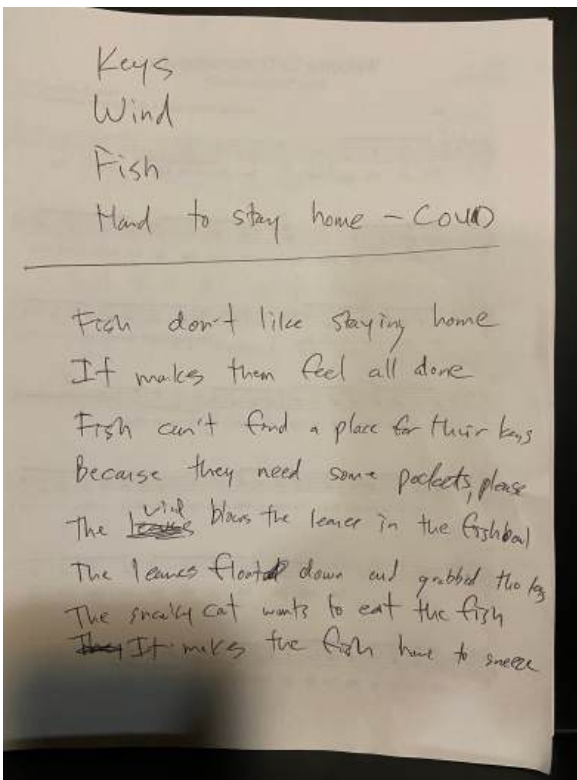 Keys
Wind
Fish
Hard to stay home - COVID
Fish don't like staying home
It makes them feel all done
Fish can't find a place for their keys
Because they need some pockets, please
The wind blows the leaves in the fishbowl
The leaves floated down and grabbed the keys
The sneaky cat wants to eat the fish
It makes the fish have to sneeze